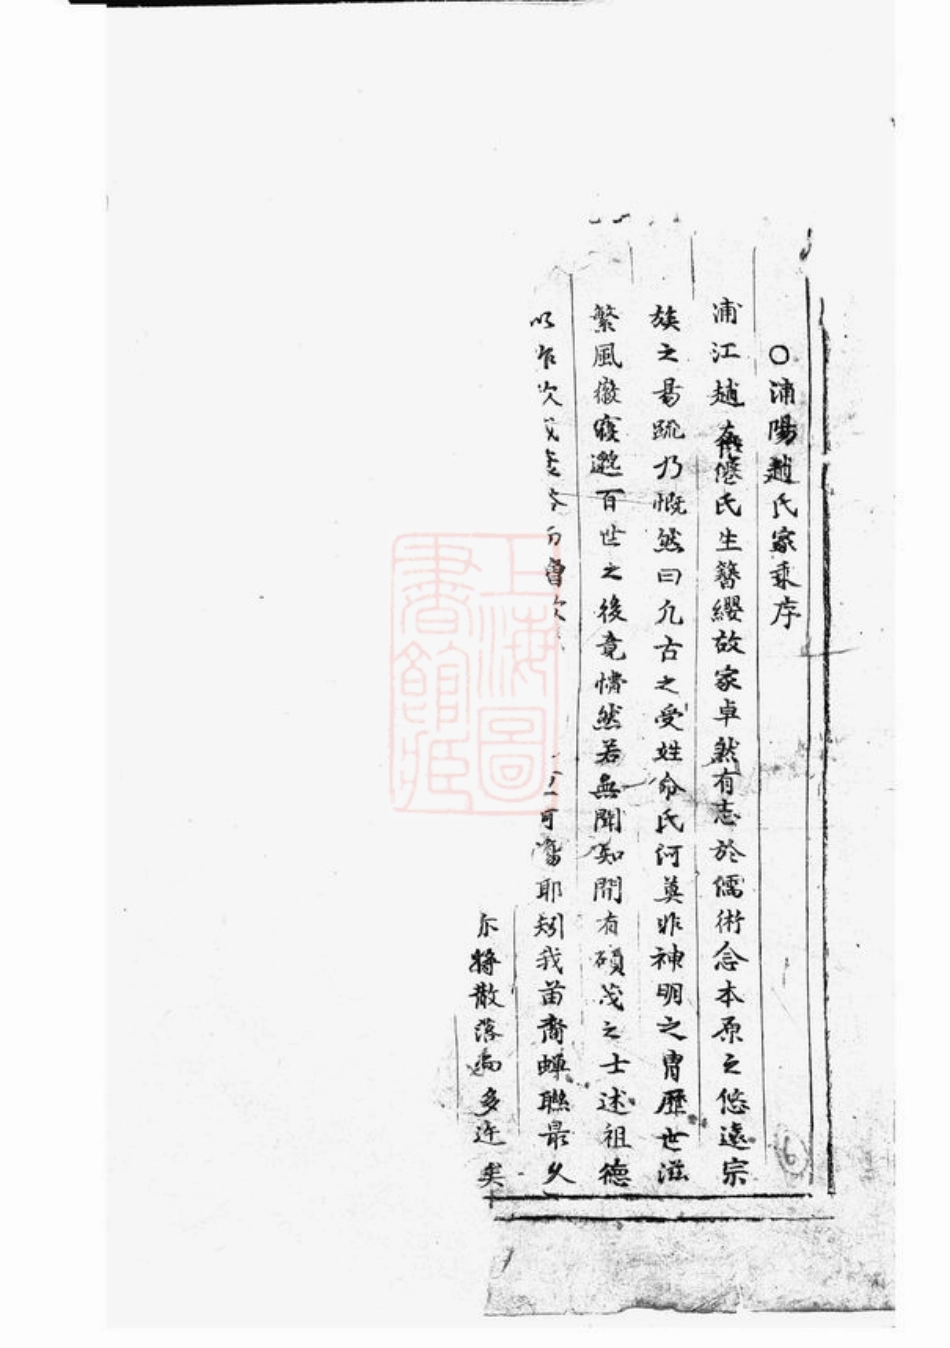 ○浦陽趙氏家乘序
浦江趙友儋氏生簪纓故家卓然有志於儒術念本原之悠遠宗
族之易疏乃慨然曰凢古之受姓命氏何莫非神明之冑歷世滋
繁風徽寖邈百世之後竟懵然若無聞知間有碩茂之士述祖德
以作次或 曾 可 耶矧我苗裔蟬聯最久
尔將散落而多迕矣
6
上海圖書館藏